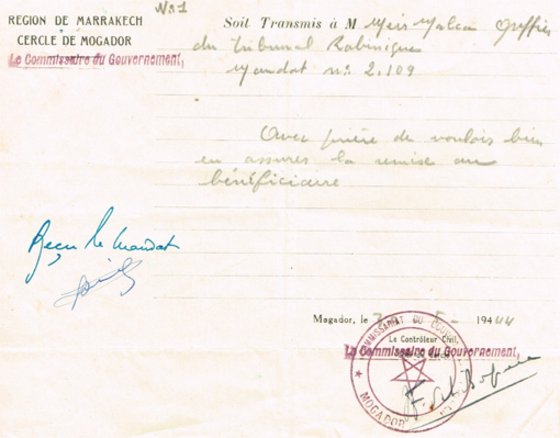 No 1
REGION DE MARRAKECH
CERCLE DE MOGADOR
Le Commissaire du Gouvernement,
Soit Transmis à M Meir Malca Greffier
du Tribunal Rabinique
Mandat no 2.109
Avec prière de vouloir bien
en assurer la remise au
bénéficiaire
Reçu le mandat
Mogador, le 194 44
Le Contrôleur Civil,
Le Commissaire du Gouvernement,
COMMISSARIAT DU GOUV
MOGADOR